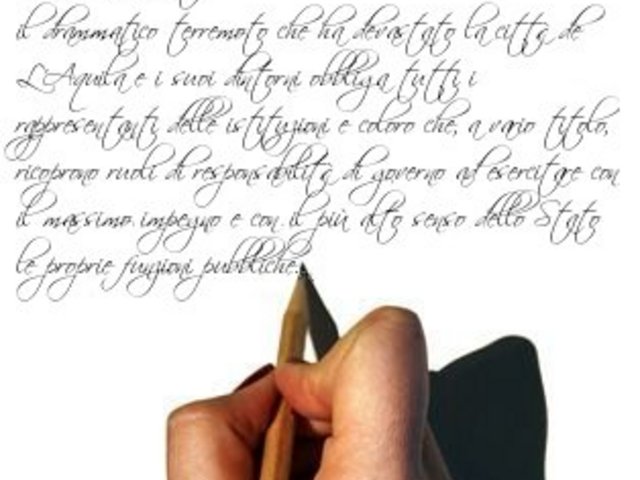 il drammatico terremoto che ha devastato la città de
L'Aquila e i suoi dintorni obbliga tutti i
rappresentanti delle istituzioni e coloro che, a vario titolo,
ricoprono ruoli di responsabilità di governo ad esercitare con
il massimo impegno e con il più alto senso dello Stato
le proprie funzioni pubbliche.